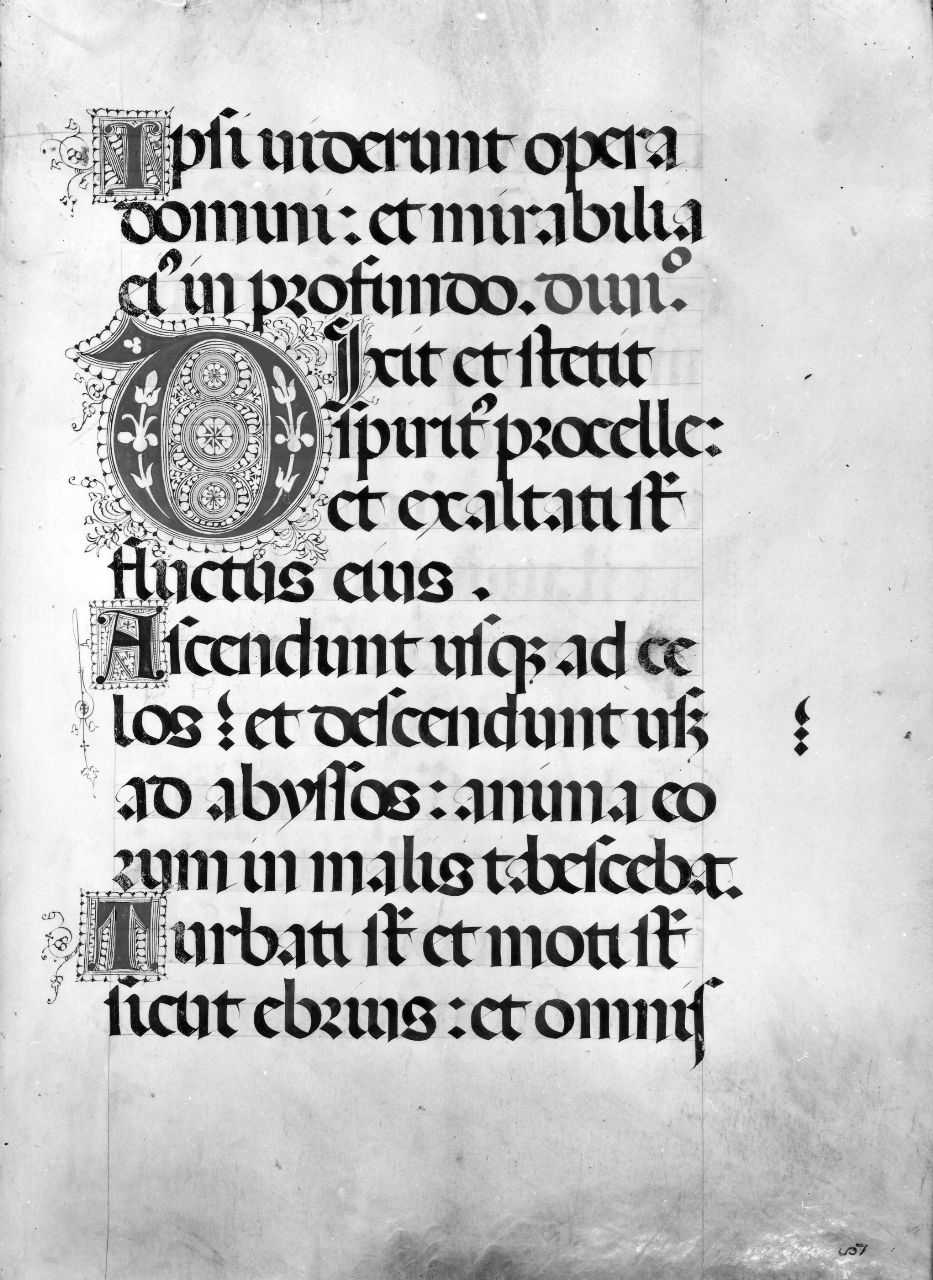 Ipsi uiderunt opera
domini: et mirabilia
ei᾽ in profundo. diuiº.
DIxit et stetit
spirit᾽ procelle:
et exaltati st̄
fluctus eius.
Ascendunt usqꝫ ad ce
los: et descendunt usꝫ
ad abyssos: anima eo
rum in malis tabescebat.
Turbati st̄ et moti st̄
sicut ebrius: et omnis